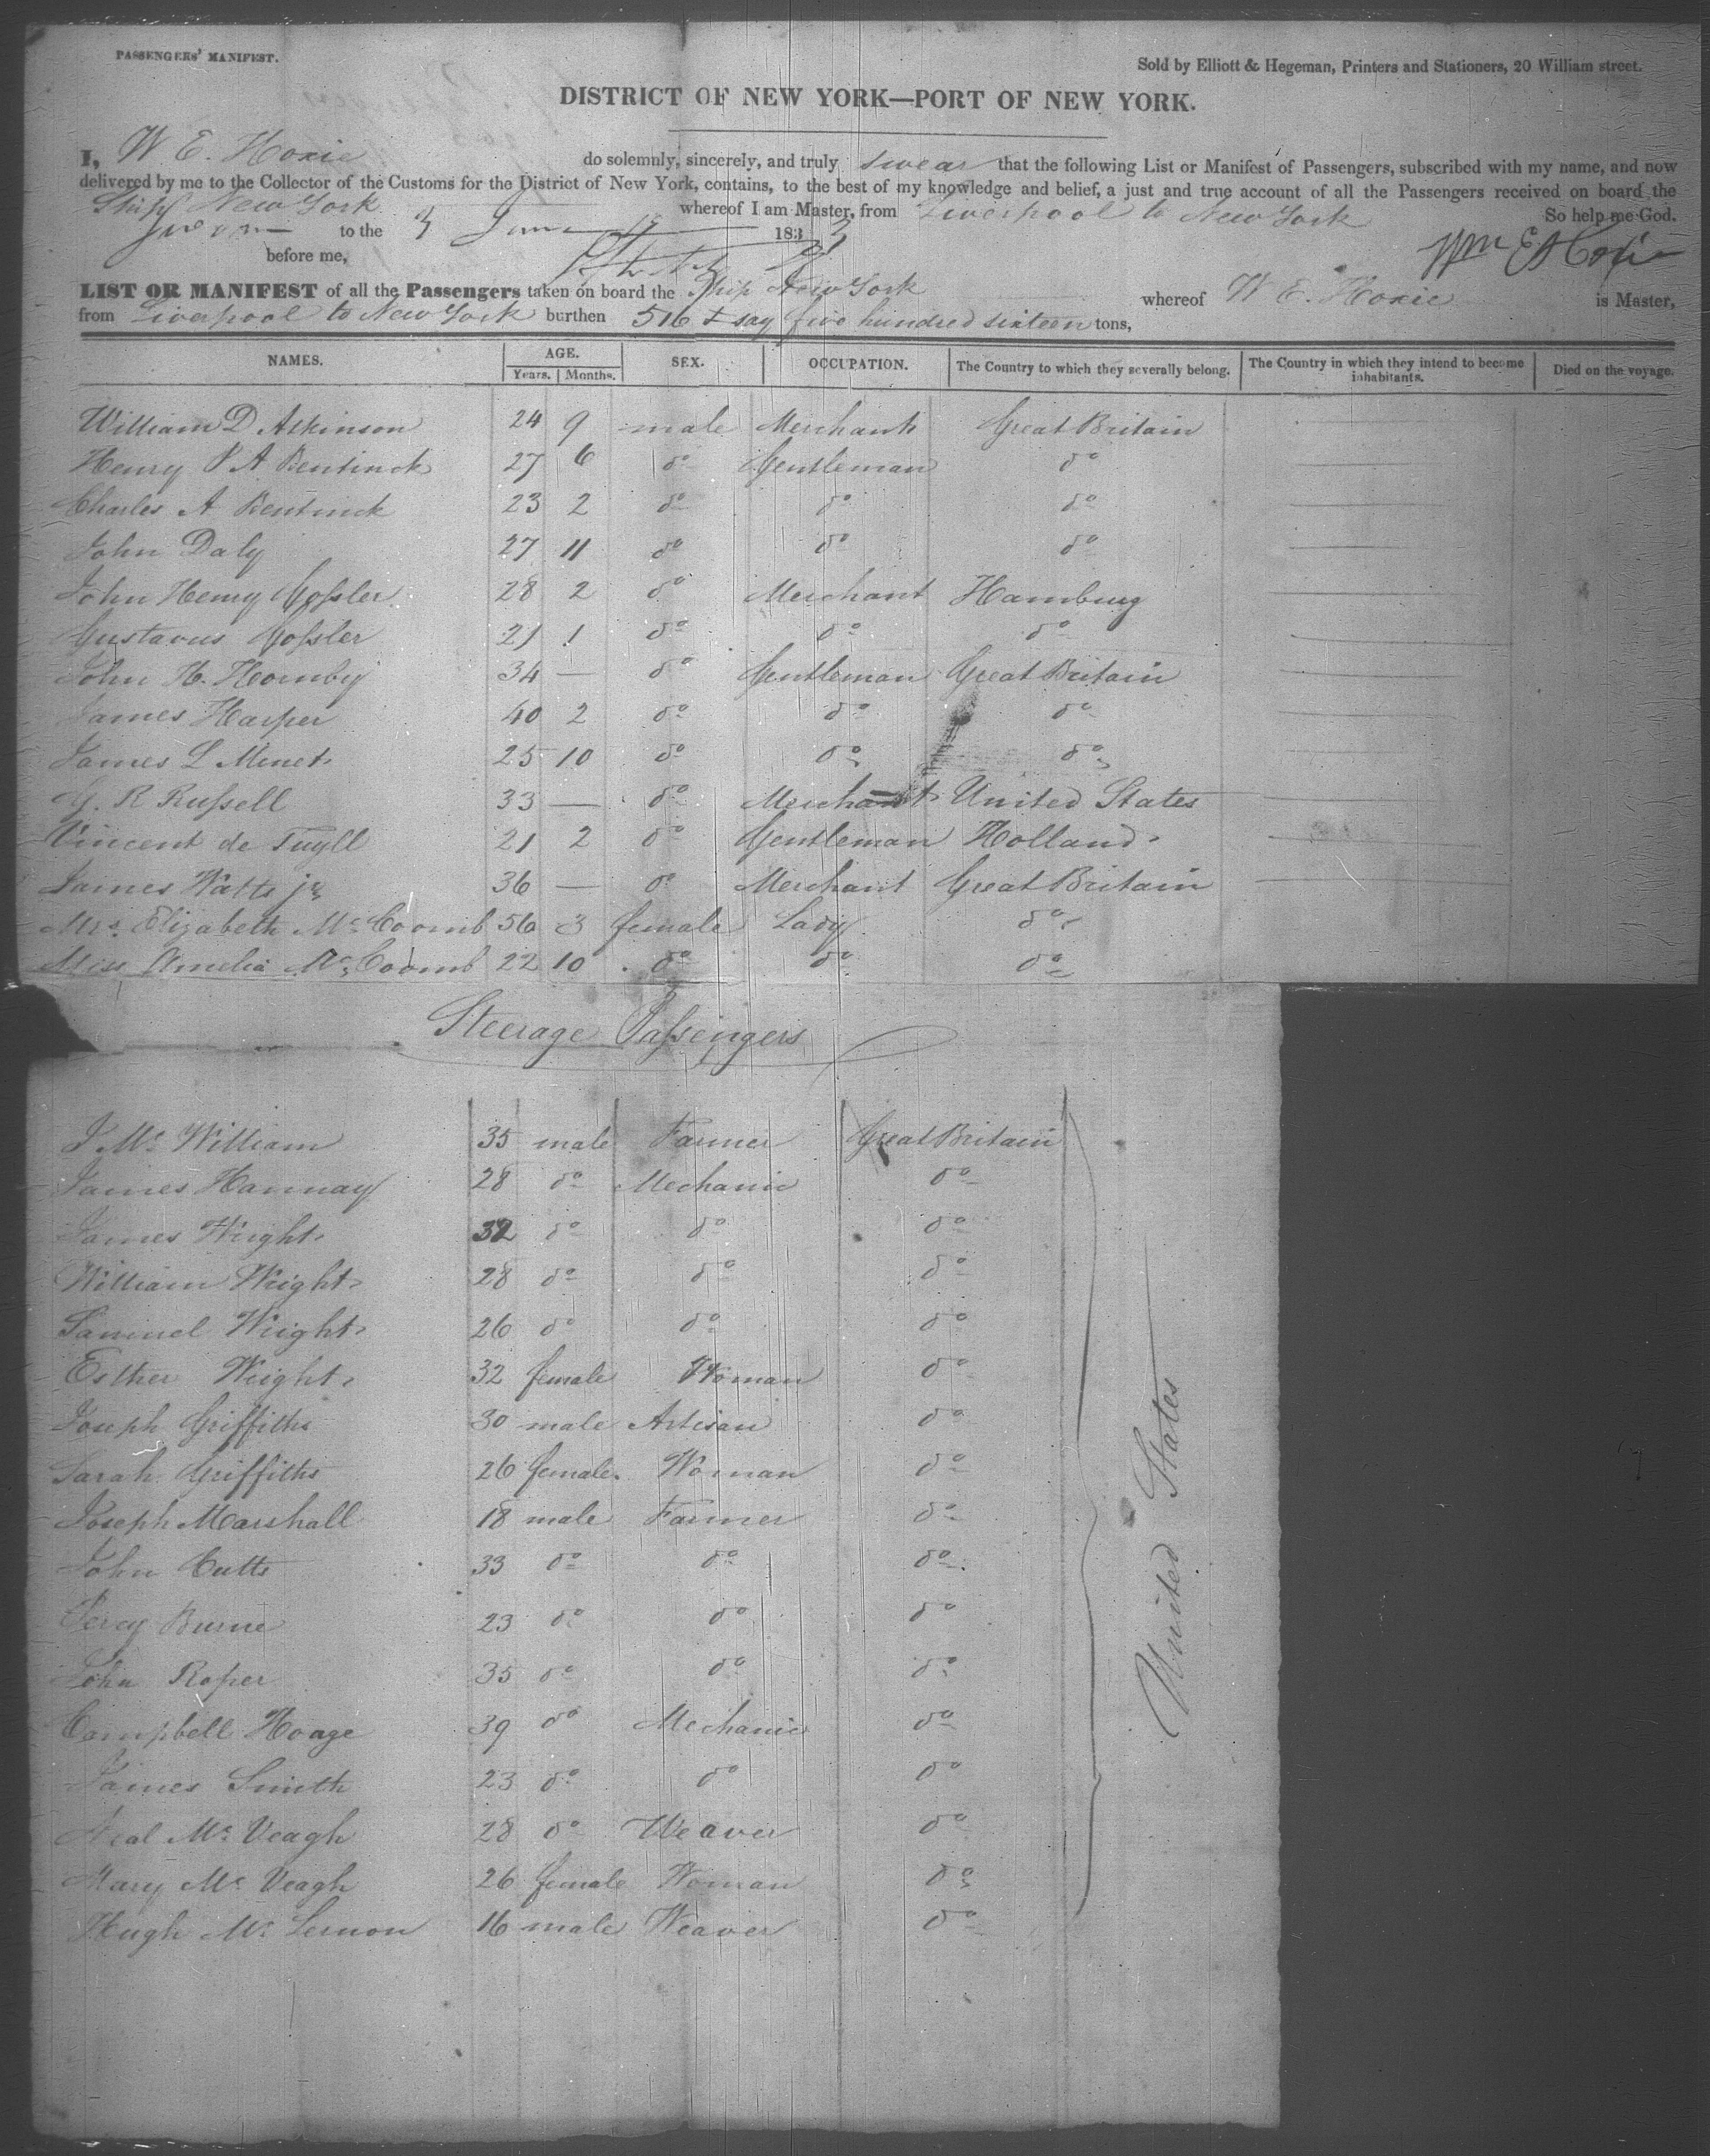 PASSENGERS' MANIFEST.
Sold by Elliott & Hegeman, Printers and Stationers, 20 William street.
DISTRICT OF NEW YORK—PORT OF NEW YORK.
I, W E. Hoxie do solemnly, sincerely, and truly swear that the following List or Manifest of Passengers, subscribed with my name, and now
delivered by me to the Collector of the Customs for the District of New York, contains, to the best of my knowledge and belief, a just and true account of all the Passengers received on board the
Ship New York whereof I am Master, from Liverpool to New York So help me God.
Sworn to the 3 June 1833
before me, Wm E Hoxie
LIST OR MANIFEST of all the Passengers taken on board the Ship New York whereof W E. Hoxie is Master,
from Liverpool to New York burthen 516 say five hundred sixteen tons,
NAMES. AGE. Years. Months. SEX. OCCUPATION. The Country to which they severally belong. The Country in which they intend to become inhabitants. Died on the voyage.
William D Atkinson 24 9 male Merchant Great Britain
Henry P A Bentinck 27 6 do Gentleman do
Charles A Bentinck 23 2 do do do
John Daly 27 11 do do do
John Henry Gossler 28 2 do Merchant Hamburg
Gustavus Gossler 21 1 do do do
John H. Hornby 34 — do Gentleman Great Britain
James Harper 40 2 do do do
James L Minet 25 10 do do do
G. R Russell 33 — do Merchant United States
Vincent de Tuyll 21 2 do Gentleman Holland
James Watts jr 36 — do Merchant Great Britain
Mrs. Elizabeth McCoomb 56 3 female Lady do
Miss Amelia McCoomb 22 10 do do do
Steerage Passengers
J Mc William 35 male Farmer Great Britain
James Hannay 28 do Mechanic do
James Wright 32 do do do
William Wright 28 do do do
Samuel Wright 26 do do do
Esther Wright 32 female Woman do
Joseph Griffiths 30 male Artisan do
Sarah Griffiths 26 female Woman do
Joseph Marshall 18 male Farmer do
John Cutts 33 do do do
Percy Burne 23 do do do
John Roper 35 do do do
Campbell Hoage 39 do Mechanic do
James Smith 23 do do do
Neal Mc Veagh 28 do Weaver do
Mary Mc Veagh 26 female Woman do
Hugh Mc Lernon 16 male Weaver do
United States